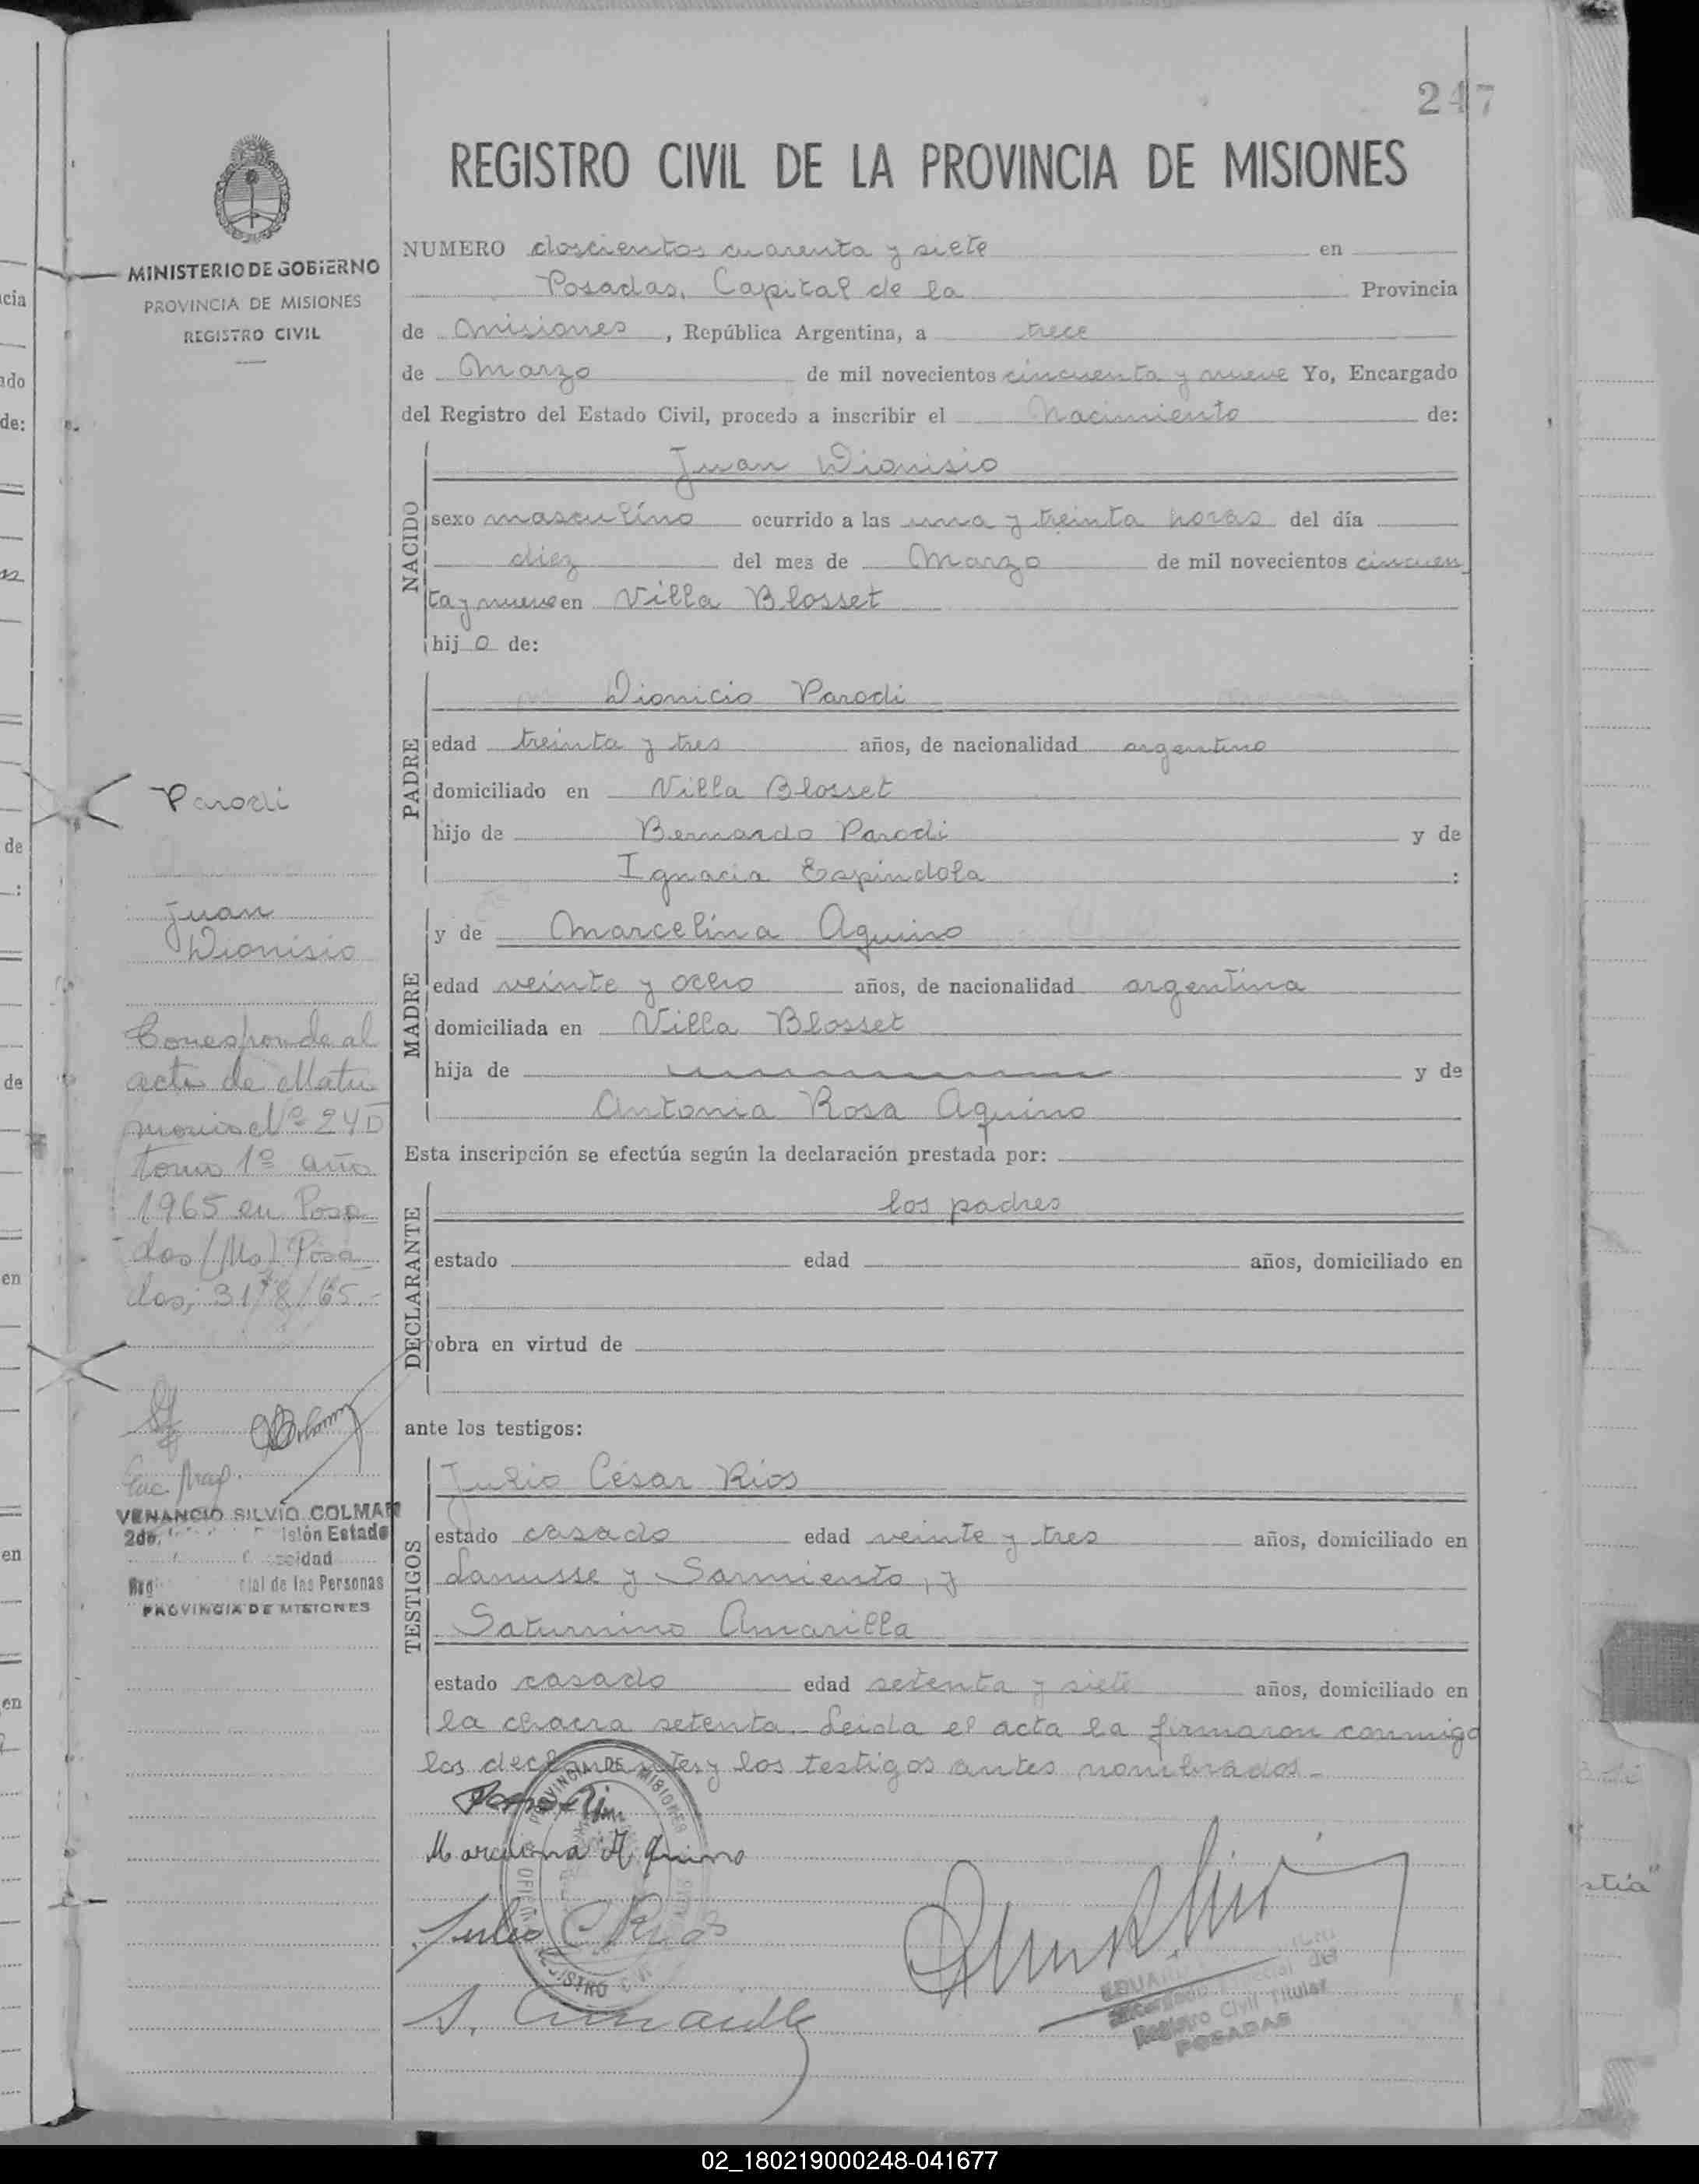 247
REGISTRO CIVIL DE LA PROVINCIA DE MISIONES
MINISTERIO DE GOBIERNO
PROVINCIA DE MISIONES
REGISTRO CIVIL
NUMERO doscientos cuarenta y siete en
Posadas, Capital de la Provincia
de Misiones, República Argentina, a trece
de Marzo de mil novecientos cincuenta y nueve Yo, Encargado
del Registro del Estado Civil, procedo a inscribir el Nacimiento de:
NACIDO
Juan Dionisio
sexo masculino ocurrido a las una y treinta horas del día
diez del mes de Marzo de mil novecientos cincuen
ta y nueve en Villa Blosset
hijo de:
PADRE
Dionicio Parodi
edad treinta y tres años, de nacionalidad argentino
domiciliado en Villa Blosset
hijo de Bernardo Parodi y de
Ignacia Espindola :
MADRE
y de Marcelina Aquino
edad veinte y ocho años, de nacionalidad argentina
domiciliada en Villa Blosset
hija de y de
Antonia Rosa Aquino
Esta inscripción se efectúa según la declaración prestada por:
DECLARANTE
los padres
estado edad años, domiciliado en
obra en virtud de
ante los testigos:
TESTIGOS
Julio César Rios
estado casado edad veinte y tres años, domiciliado en
Lanusse y Sarmiento, y
Saturnino Amarilla
estado casado edad setenta y siete años, domiciliado en
la chacra setenta. Leida el acta la firmaron conmigo
los declarantes y los testigos antes nombrados.-
Marcelina Aquino
Julio C Rios
S. Amarilla
Parodi
Juan
Dionisio
Corresponde al
acta de Matri
monio Nº 24D
tomo 1º año
1965 en Posa
das (Ms) Posa
das, 31/8/65.-
VENANCIO SILVIO COLMAN
2do. isión Estado
cidad
cial de las Personas
PROVINCIA DE MISIONES
PROVINCIA DE MISIONES
REGISTRO
Registro Civil Titular
POSADAS
02_180219000248-041677